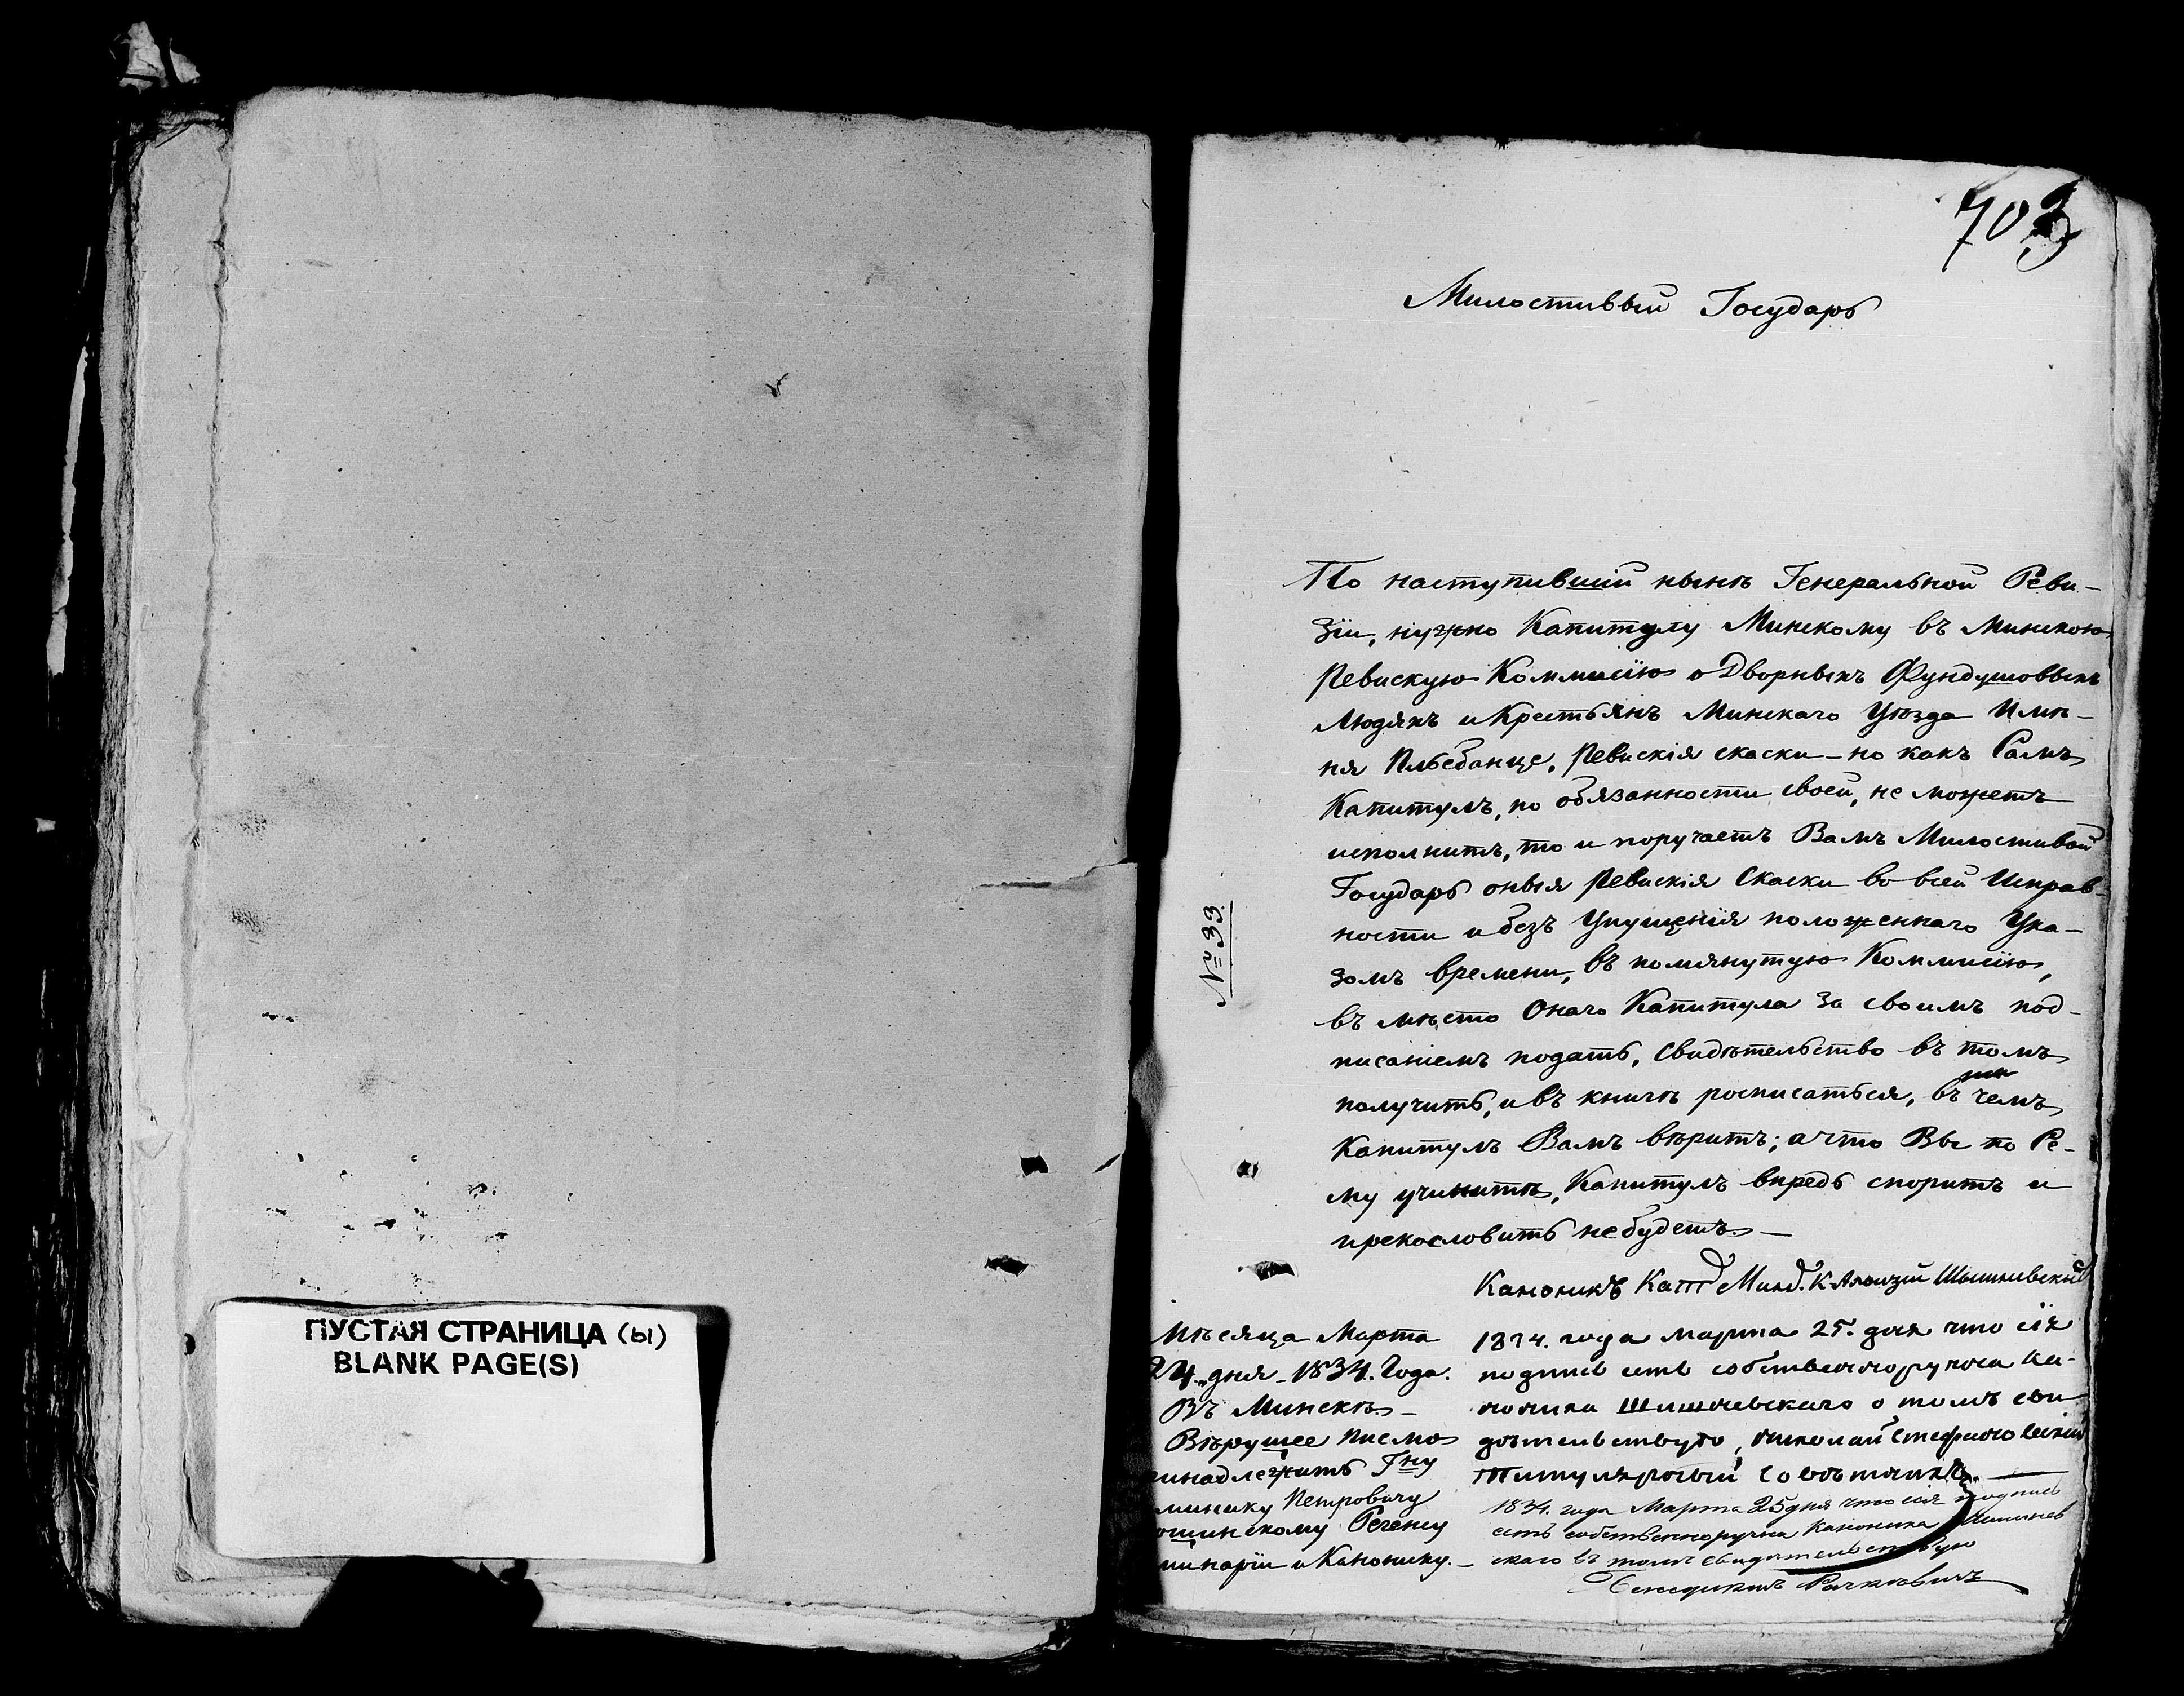 ПУСТАЯ СТРАНИЦА (ы)
BLANK PAGE(S)
703
Милостивый Государь
По наступившій нынѣ Генеральной Реви-
зіи, нужно Капитулу Минскому въ Минскою
Ревискую Коммисію о Дворныхъ Фундушовыхъ
Людяхъ и Крестьянъ Минскаго Уѣзда Имѣ-
ня Плебанце, Ревискія скаски - но какъ Самъ
Капитулъ, по обязанности своей, не можетъ
исполнитъ, то и поручаетъ Вамъ Милостивой
Государь оныя Ревискія Скаски во всей Исправ-
ности и безъ Упущенія положеннаго Ука-
зомъ времени, въ помянутую Коммисію,
въ мѣсто Онаго Капитула за своимъ под-
писаніемъ подать, свидѣтельство въ томъ
получить, и въ книгѣ росписаться, въ чемъ
Капитулъ Вамъ вѣритъ; а что Вы по Се-
му учините, Капитулъ впредь споритъ и
прекословить не будетъ. -
№ 33
Каноникъ Кат Минс. К. Алоизій Шышневскій
Мѣсяца Марта
24 дня 1834. Года.
Въ Минскѣ -
Вѣрущее писмо
инадлежить Гну
минику Петровичу
ошинскому Регенсу
минаріи и Канонику. -
1834. года марта 25. дня что сія
подпись есть собственноручна Ка-
ноника Шишневскаго о томъ сви
дѣтельствую, Николай Стефановскій
Титулярный Совѣтникъ. -
1834. года Марта 25 дня что сія подпись
есть собственноручна Каноника Шишнев
скаго въ томъ свидѣтельствую
Бенедиктъ Рачкевичъ